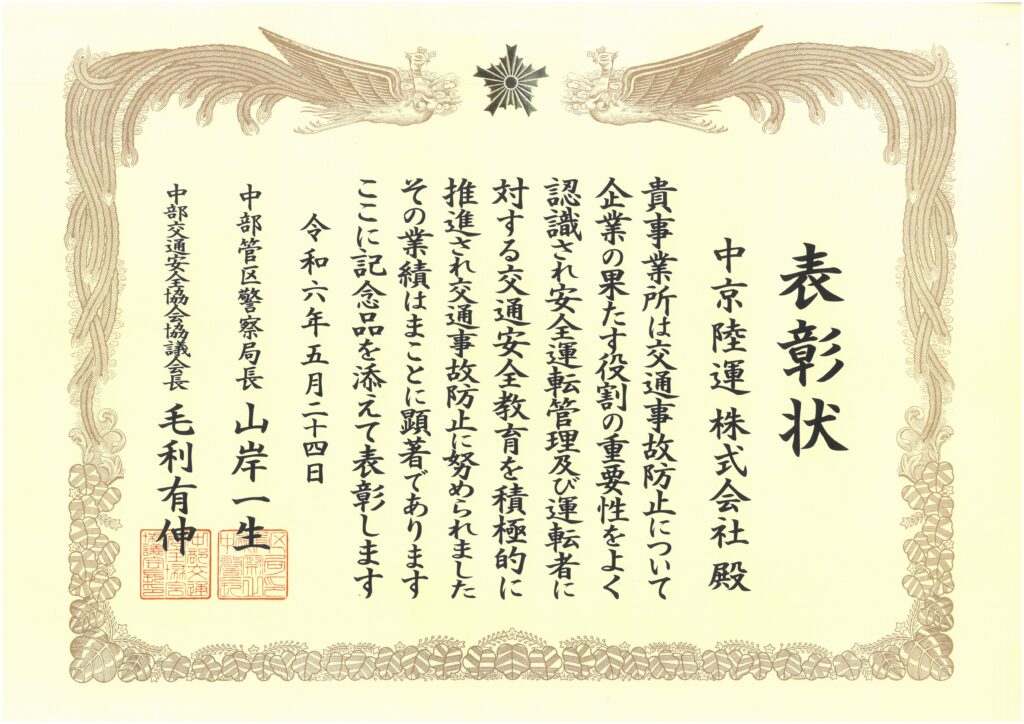 表彰状
中京陸運 株式会社 殿
貴事業所は交通事故防止について
企業の果たす役割の重要性をよく
認識され安全運転管理及び運転者に
対する交通安全教育を積極的に
推進され交通事故防止に努められました
その業績はまことに顕著であります
ここに記念品を添えて表彰します
令和六年五月二十四日
中部管区警察局長 山岸一生
中部交通安全協会協議会長 毛利有伸